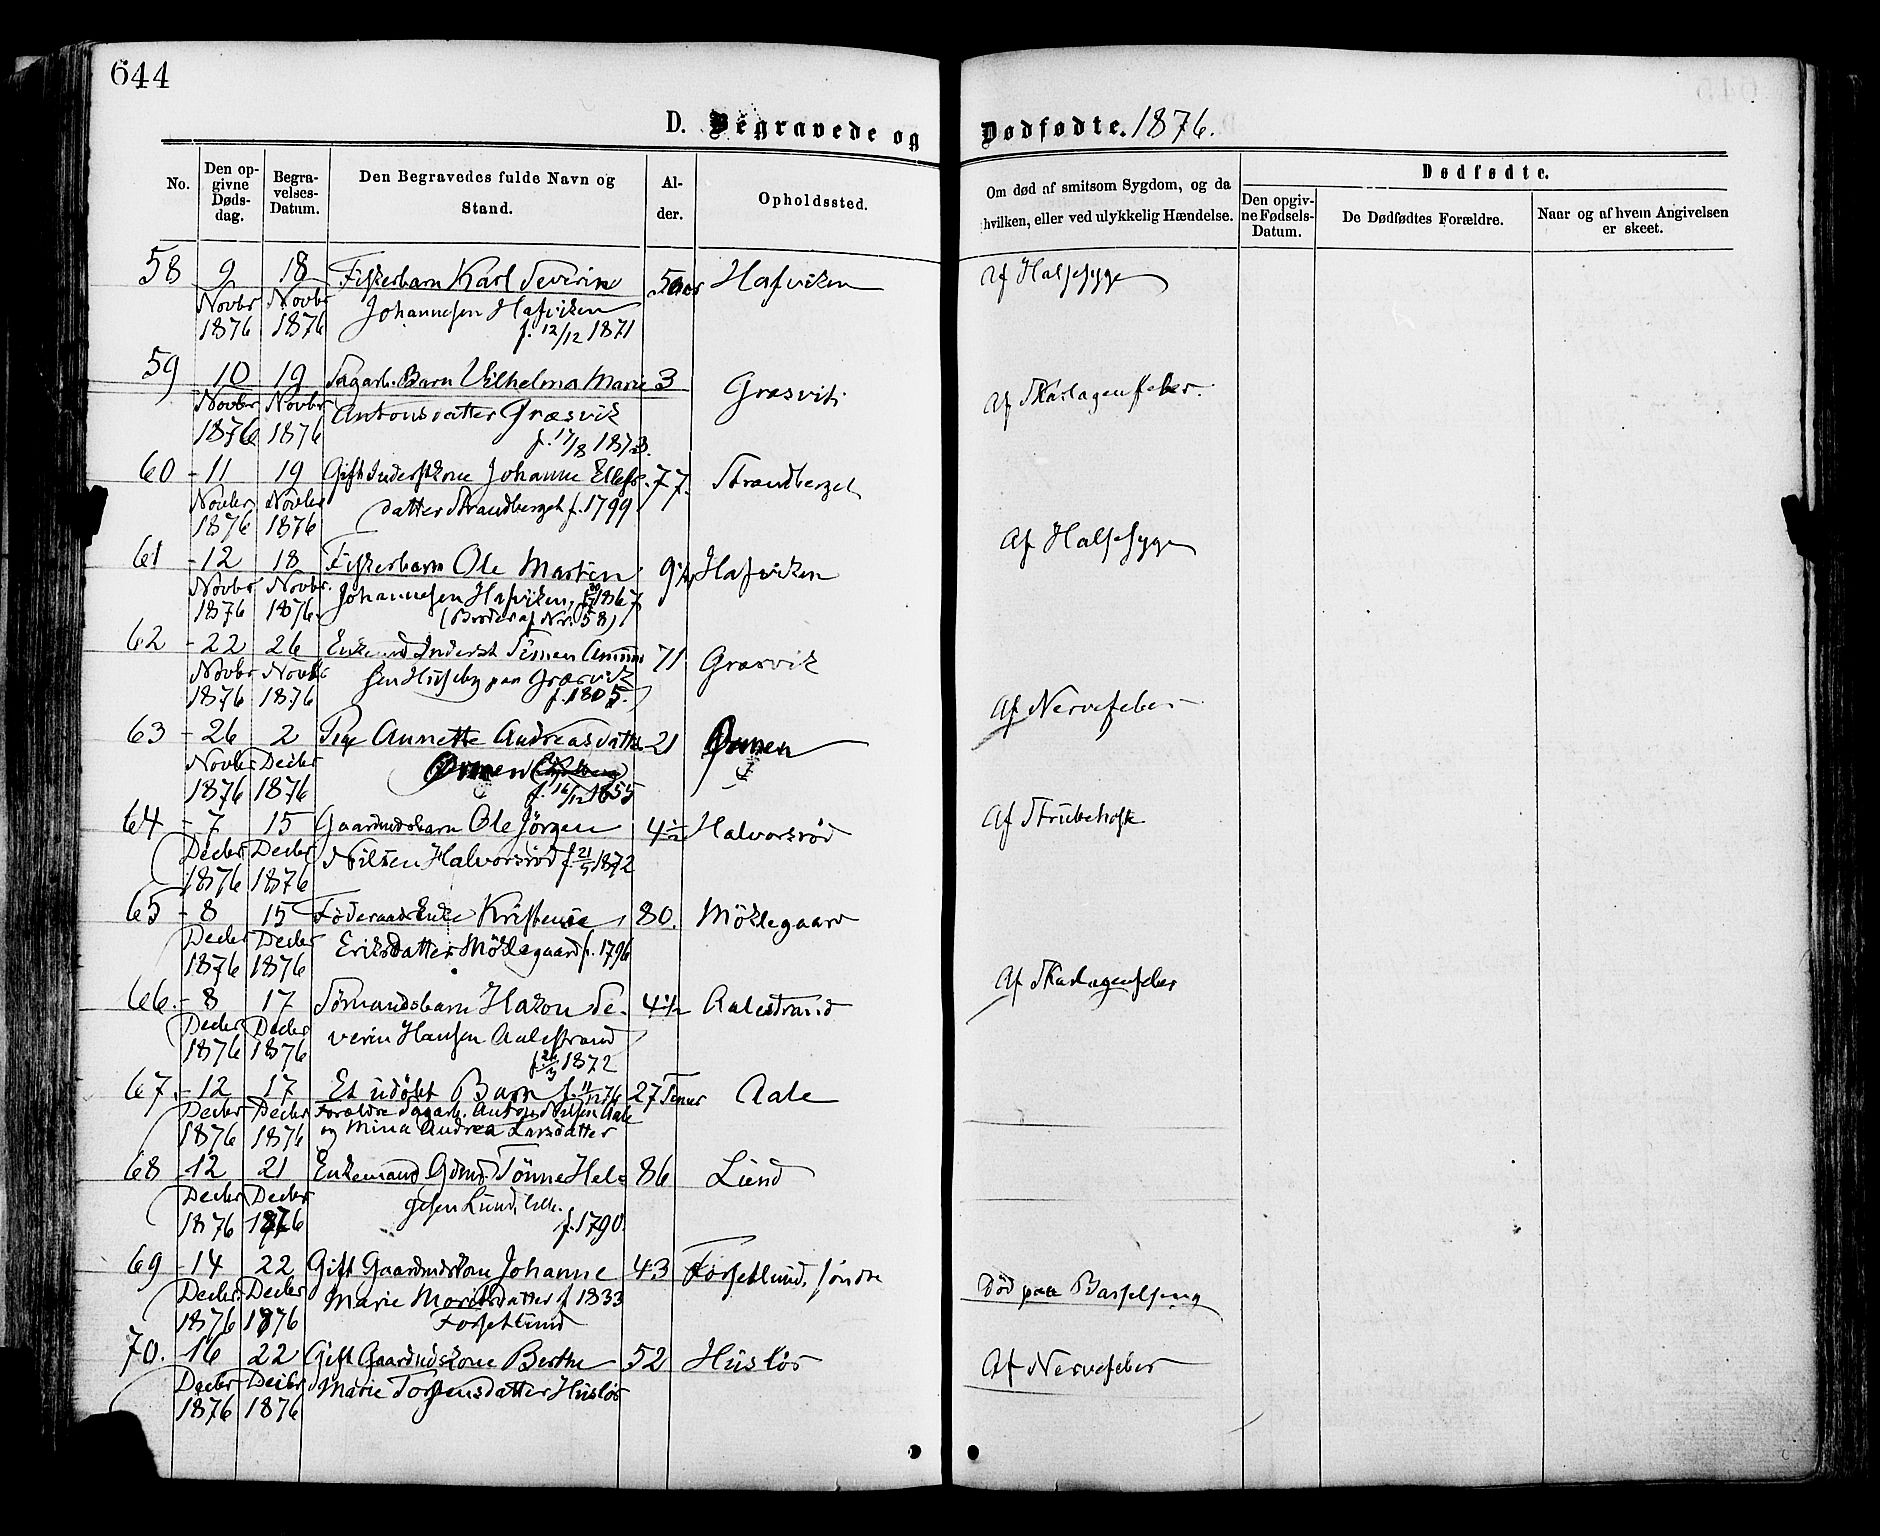 644
D. Begravede og Dødfødte. 1876.
No.
Den opgivne Dødsdag.
Begravelses-Datum.
Den Begravedes fulde Navn og Stand.
Alder.
Opholdssted.
Om død af smitsom Sygdom, og da hvilken, eller ved ulykkelig Hændelse.
Dødfødte.
Den opgivne Fødsels-Datum.
De Dødfødtes Forældre.
Naar og af hvem Angivelsen er skeet.
58 9 18 Fiskerbarn Karl Severin 5 aar Hafviken Af Halssyge
Novbr Novbr Johannesen Hafviken
1876 1876 f. 12/12 1871
59 10 19 Sagarb. Barn Vilhelma Marie 3 Græsvik Af Skarlagensfeber.
Novbr Novbr Antonsdatter Græsvik
1876 1876 f. 17/8 1873.
60 - 11 19 Gift Inderstkone Johanne Ellefs- 77. Strandberget
Novbr Novbr datter Strandberget f. 1799
1876 1876
61 - 12 18 Fiskerbarn Ole Martin 9 1/2 Hafviken Af Halssyge
Novbr Novbr. Johannesen Hafviken, 1867
1876 1876. (Broder af Nr. 58)
62 - 22 26 Enkemand Inderst Simen 71 Græsvik
Novbr Novbr sen Huseby paa Græsvik
1876 1876 f. 1805.
63 - 26 2 Pige Annette Andreasdatter 21 Ørmen Af Nervefeber
Novbr Decbr Ørmen
1876 1876 f. 16/12 1855
64 - 7 15 Gaardmdsbarn Ole Jørgen 4 1/2 Halvorsrød Af Strubehoste
Decbr Decbr Nilsen Halvorsrød f. 21/5 1872
1876 1876
65 - 8 15 Føderaads Enke Kristense 80. Möklegaard
Decbr Decbr Eriksdatter Möklegaard f. 1796
1876 1876
66. - 8 17 Sömandsbarn Hakon Se- 4 1/2 Aalestrand Af Skarlagensfeber
Decbr Decbr verin Hansen Aalestrand
1876 1876 f. 26/3 1872
67. - 12 17 Et udøbt Barn f. 11/12 76 27 Timer Aale
Decbr Decbr Forældre Sagarb. Anton Nilsen Aale
1876 1876 og Mina Andrea Larsdatter
68 - 12 21 Enkemand Gdmd. Tönne Hel- 86 Lund
Decbr Decbr gesen Lund, lille.
1876 1876 f. 1790
69 - 14 22 Gift Gaardmdskone Johanne 43 Forsetlund, söndre Död paa Barselseng
Decbr Decbr Marie Moritsdatter f 1833
1876 1876 Forsetlund
70. - 16 22 Gift Gaardmdskone Berthe 52 Huslös Af Nervefeber
Decbr Decbr Marie Torstensdatter Huslös
1876 1876